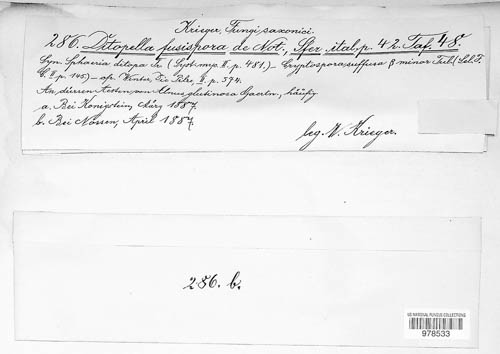 Krieger, Fungi saxonici.
286. Ditopella fusispora de Not., Sfer. ital. p. 42. Taf. 48.
Syn. Sphaeria ditopa Fr. (Syst. myc. II. p. 481.) – Cryptospora suffusa β minor Tul. (Sel. F.
C. II. p. 145) – cfr. Winter, Die Pilze, II. p. 594.
An dürren Aesten von Alnus glutinosa Gaertn., häufig
a. Bei Königstein, März 1887.
b. Bei Nossen, April 1887.
leg. W. Krieger.
286. b.
US NATIONAL FUNGUS COLLECTIONS
978533